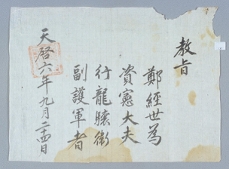 教旨
鄭經世爲
資憲大夫
行龍驤衛
副護軍者
天啓六年九月二十四日